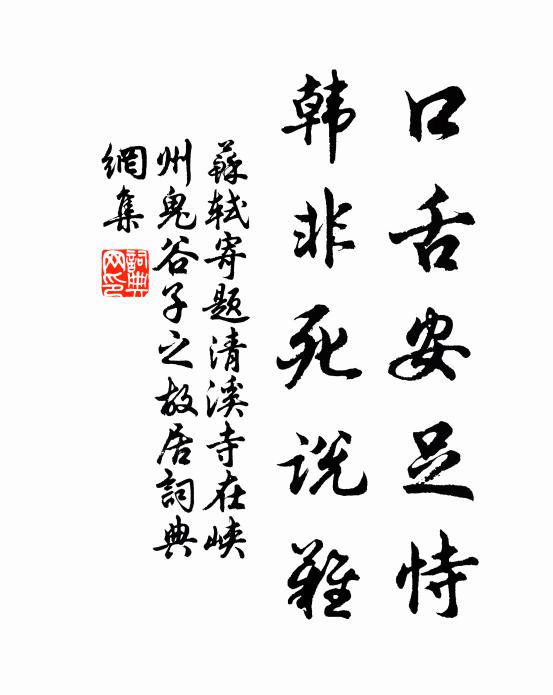 口舌安足恃
韩非死说难
蘇軾寄题清溪寺在峡
州鬼谷子之故居詞典
網集
詞典网印